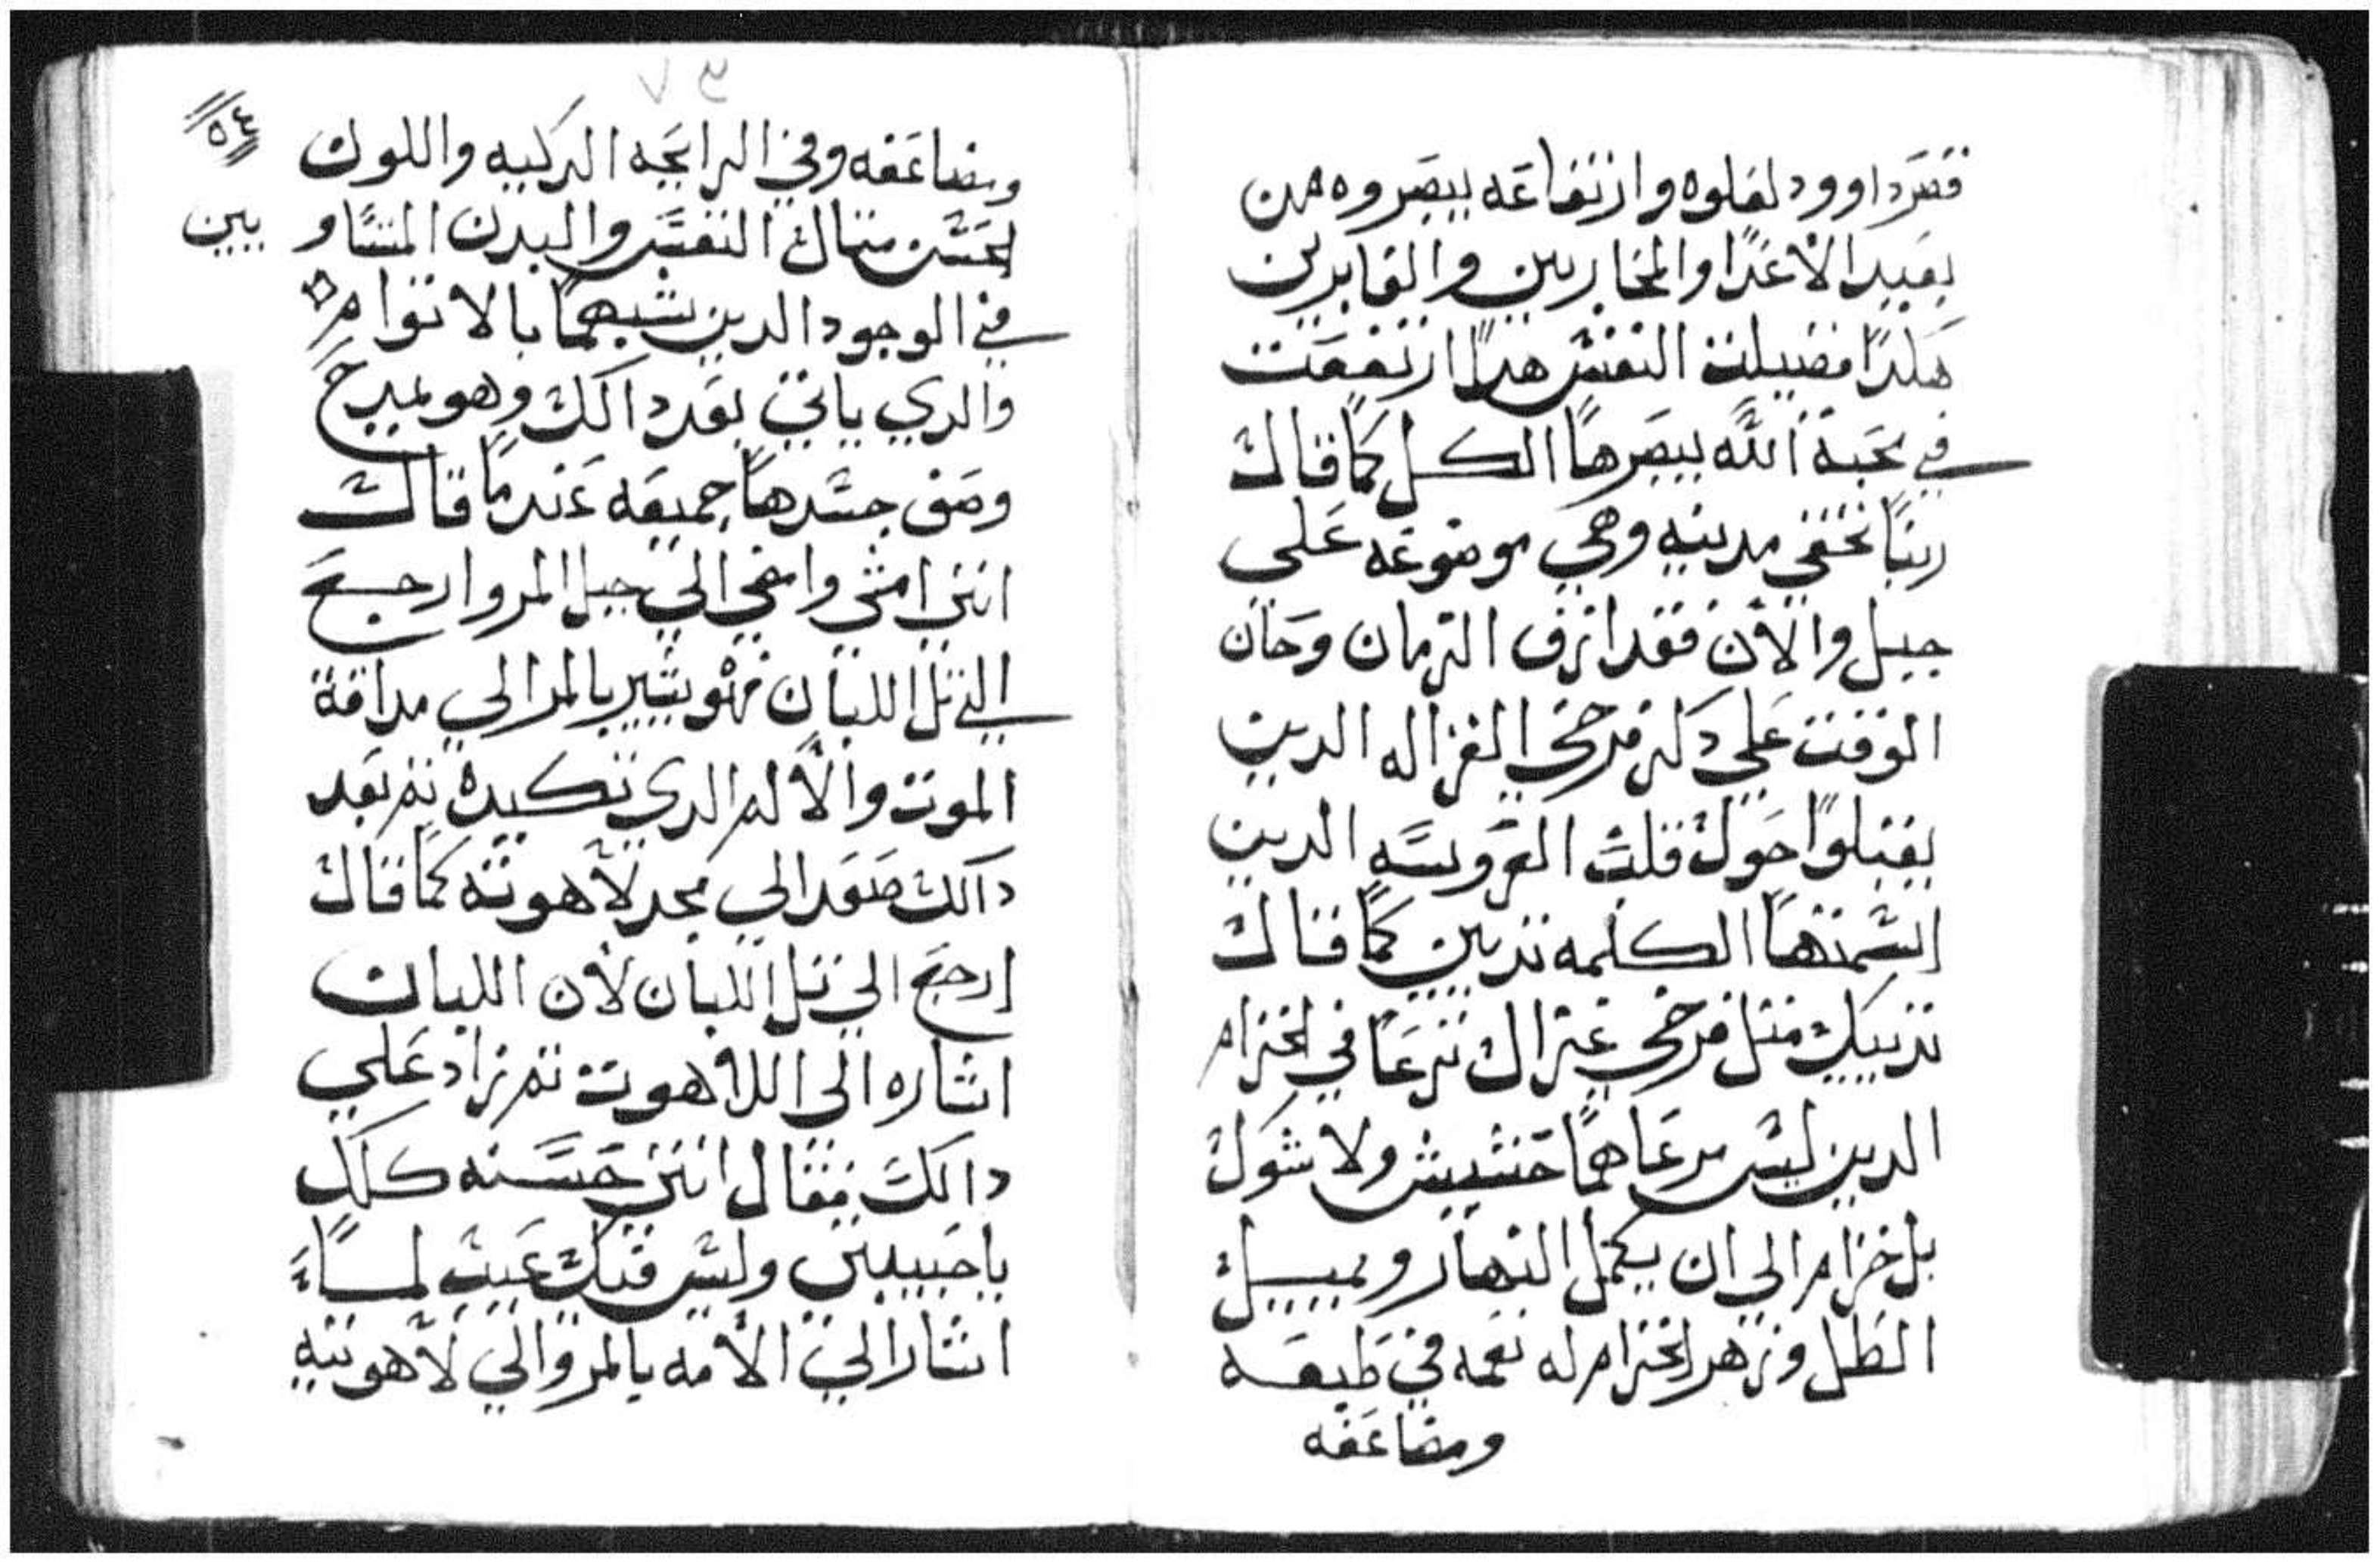 قصر داوود لعلوه وارتفاعه يبصروه من
بعيد الاعدا والمحاربين والعابرين
هكدا فضيلت النفس هدا ارتفعت
في محبة الله يبصرها الكل كما قال
ربنا تخفي مدينه وهي موضوعه علي
جبل والان فقد ازف الزمان وحان
الوقت علي دكر فرخي الغزاله الدين
يقبلوا حول قلب العروسه الدين
اسمتها الكلمه تديين كما قال
تدييك متل فرخي غزال ترعا في الخزام
الدين ليس مرعاهما حشيش ولا شوك
بل خزام الي ان يكمل النهار ويميل
الظل وزهر الخزام له نعمه في طبعه
ومضاعفه
٥٤
ومضاعفه وفي الرايحه الدكيه واللون
الحسن متال النفس والبدن المتساويين
في الوجود الدين شبههما بالاتوام
والدي ياتي بعد دالك وهو يمدح
وصف جسدها جميعه عندما قال
انني امشي وامضي الي جبل المر وارجع
الي تل اللبان فهو يشير بالمر الي مداقة
الموت والالم الدي تكبده تم بعد
دالك صعد الي مجد لاهوته كما قال
ارجع الي تل اللبان لان اللبان
اشاره الي اللاهوت تم زاد علي
دالك فقال انتي حسنه كلك
يا حبيبتي وليس فيك عيب لما
اشار الي الامه بالمر والي لاهوتيه